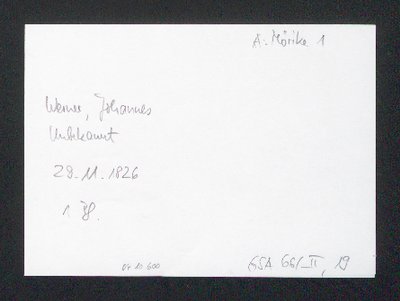 A: Mörike 1
Werner, Johannes
Unbekannt
28.11.1826
1
GSA 66/ II, 19